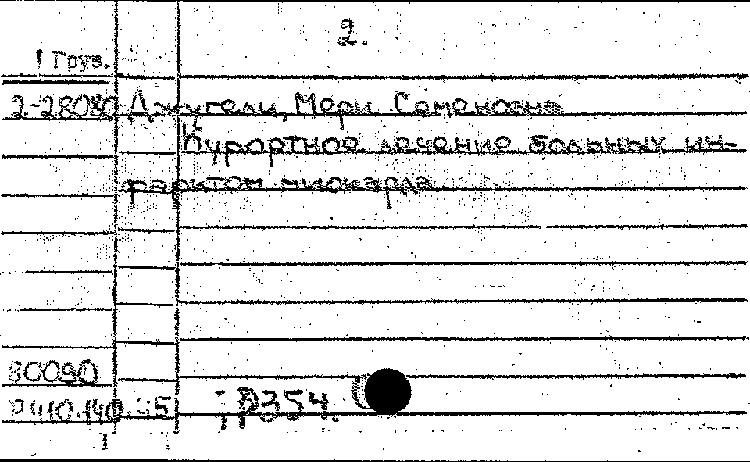 2.
! Груз.
2-28080 Джугели, Мери Семеновна
Курортное лечение больных ин-
фарктом миокарда
80090
410.140
Д354.